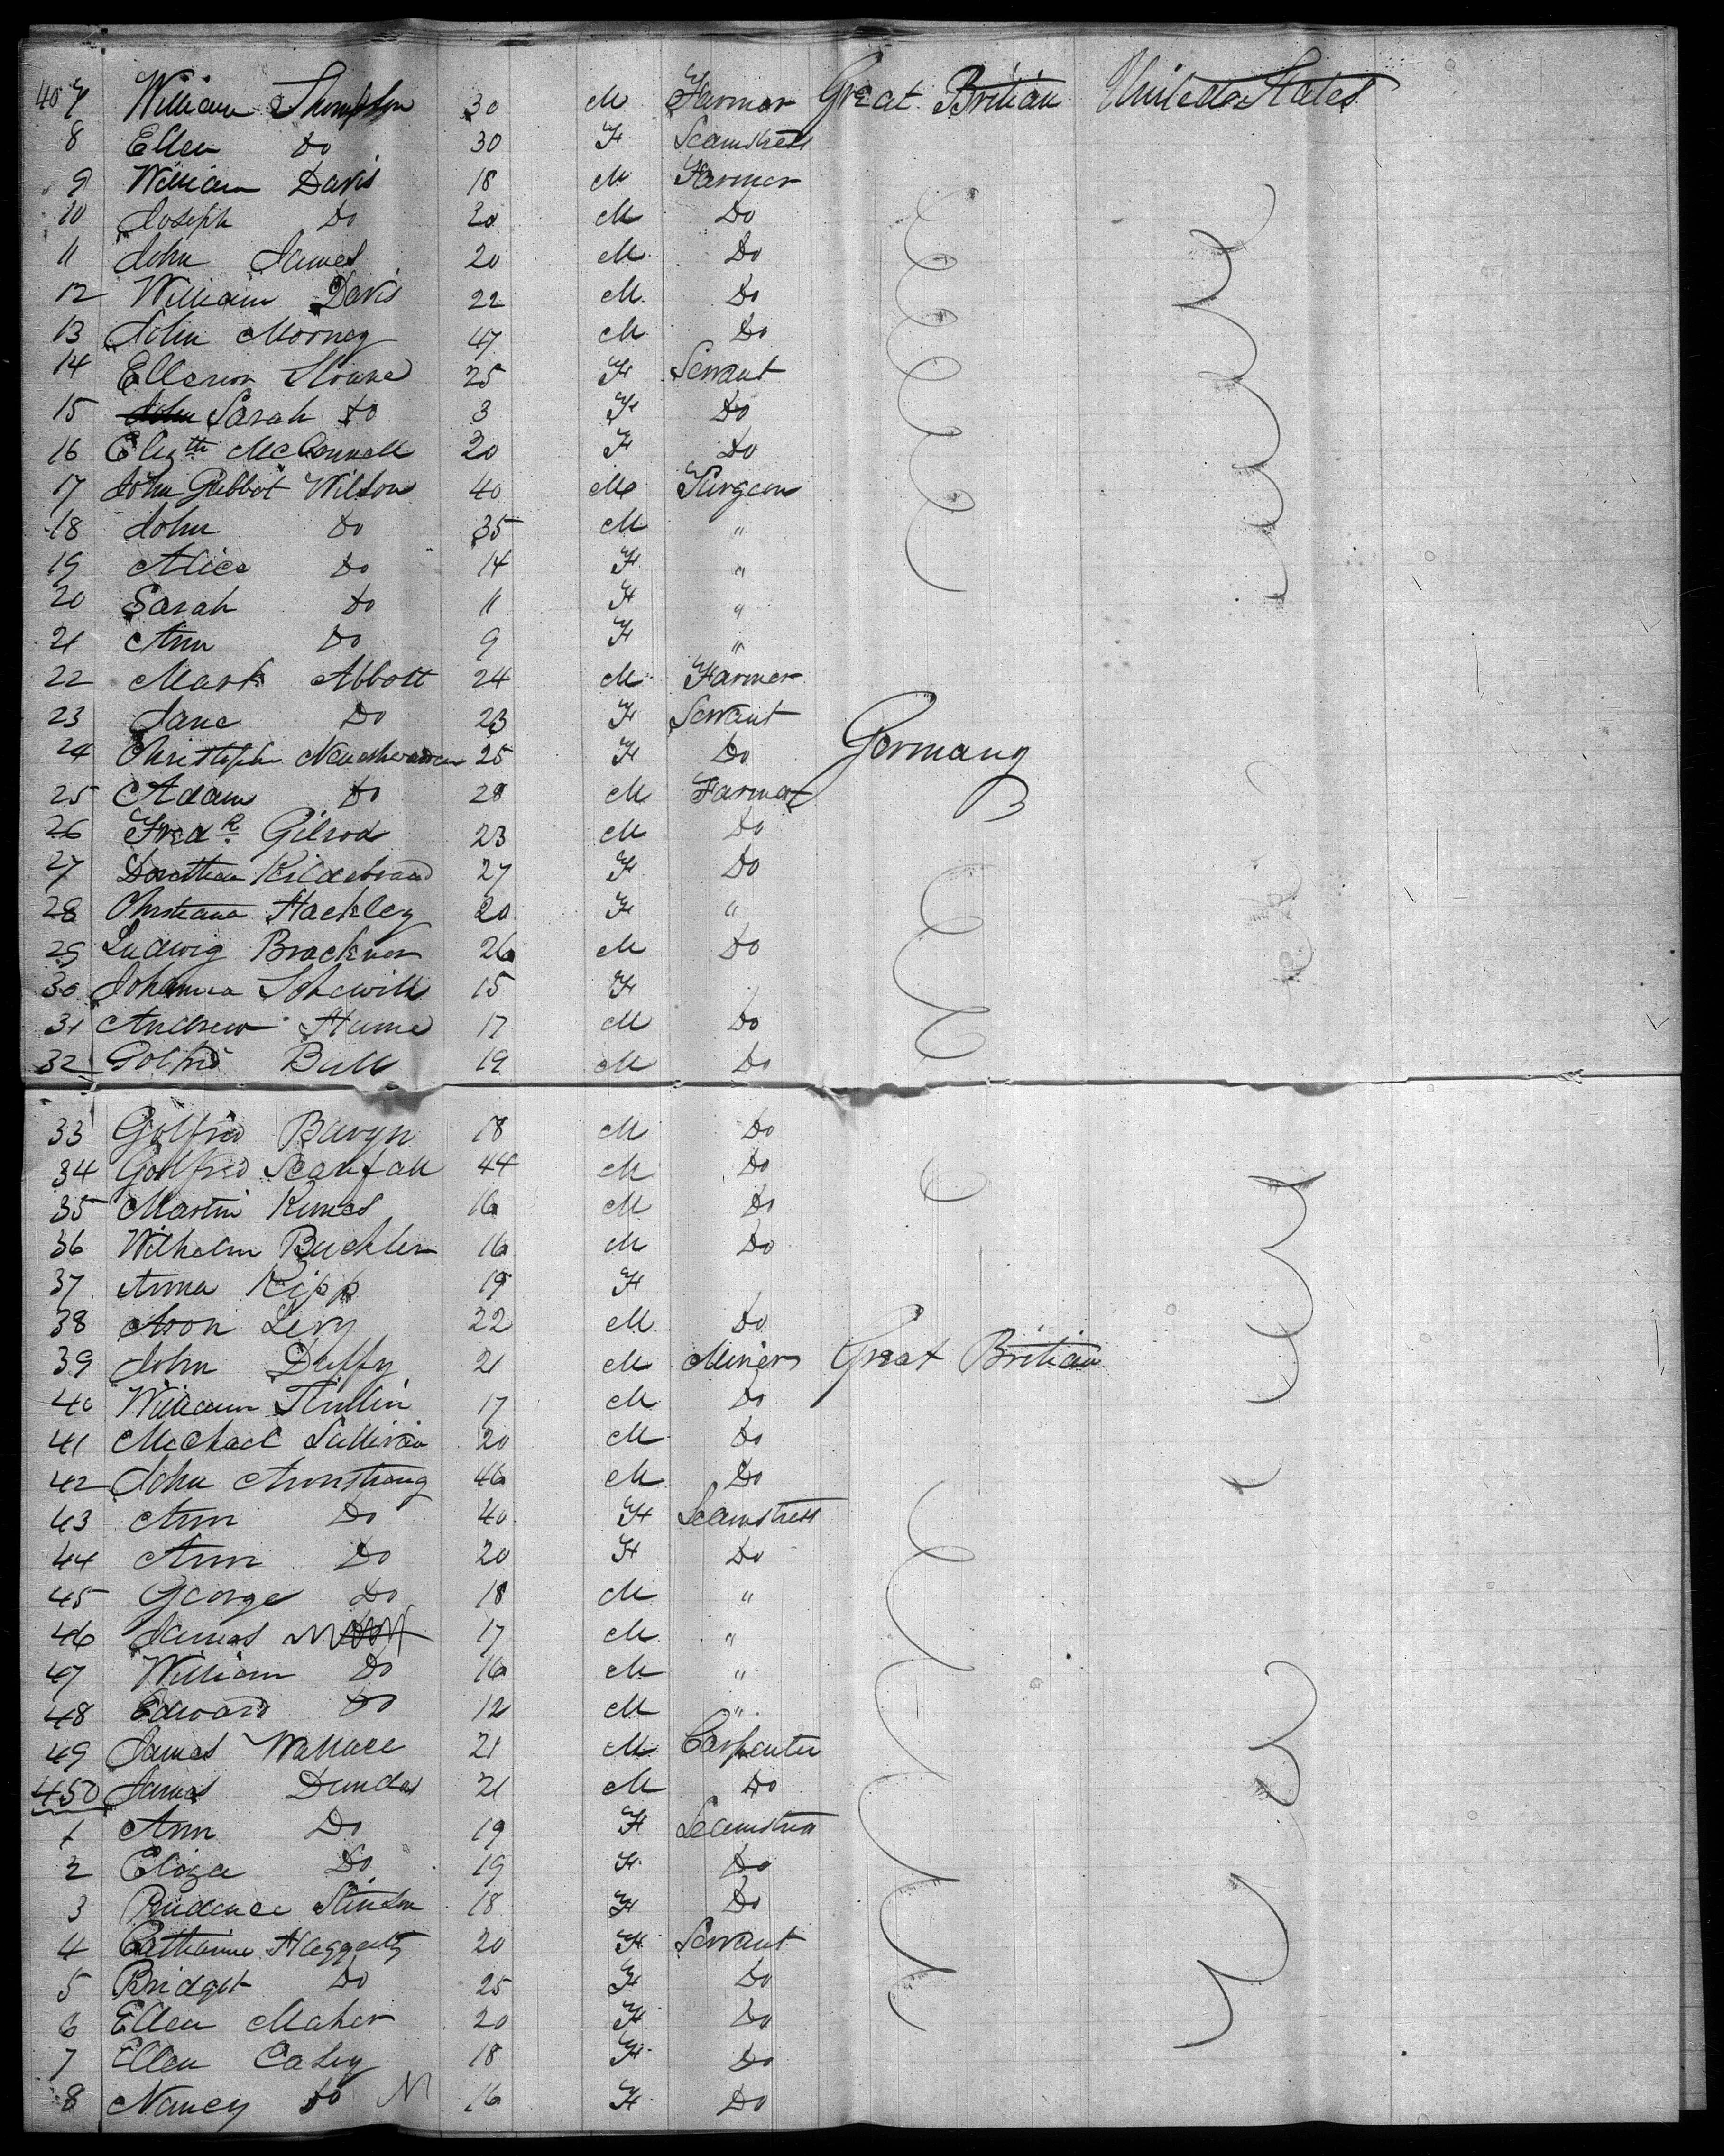 407 William Thompson 30 M Farmer Great Britian United States
8 Ellen Do 30 F Seamstress
9 William Davis 18 M Farmer
10 Joseph Do 20 M Do
11 John James 20 M Do
12 William Davis 22 M Do
13 John Mooney 47 M Do
14 Ellenor Sloane 25 F Servant
15 John Sarah Do 3 F Do
16 Elizth McConnell 20 F Do
17 John Gibbot Wilson 40 M Surgeon
18 John Do 35 M "
19 Alice Do 14 F "
20 Sarah Do 11 F "
21 Ann Do 9 F "
22 Mark Abbott 24 M Farmer
23 Jane Do 23 F Servant
24 Christoph 25 F Do Germany
25 Adam Do 28 M Farmer
26 Fredk Gilrod 23 M Do
27 Dorothea Kildebrand 27 F Do
28 Christiana Hackley 20 F "
29 Ludwig Brackner 26 M Do
30 Johanna 15 F
31 Andrew Hume 17 M Do
32 Golfrid Bull 19 M Do
33 Golfrid 18 M Do
34 Golfrid 44 M Do
35 Martin Kunes 16 M Do
36 Wilhelm Buckler 16 M Do
37 Anna Kipp 19 F
38 Aron Levy 22 M Do
39 John Duffy 21 M Miners Great Britian
40 William 17 M Do
41 Michael Sullivan 20 M Do
42 John Armstrong 46 M Do
43 Ann Do 40 F Seamstress
44 Ann Do 20 F Do
45 George Do 18 M "
46 James 17 M "
47 William Do 16 M "
48 Edward Do 12 M "
49 James Wallace 21 M Carpenter
450 James Dundas 21 M Do
1 Ann Do 19 F Seamstress
2 Eliza Do 19 F Do
3 Prudence Stinson 18 F Do
4 Catharine Haggerty 20 F Servant
5 Bridget Do 25 F Do
6 Ellen Maher 20 F Do
7 Ellen Casey 18 F Do
8 Nancy Do 16 F Do